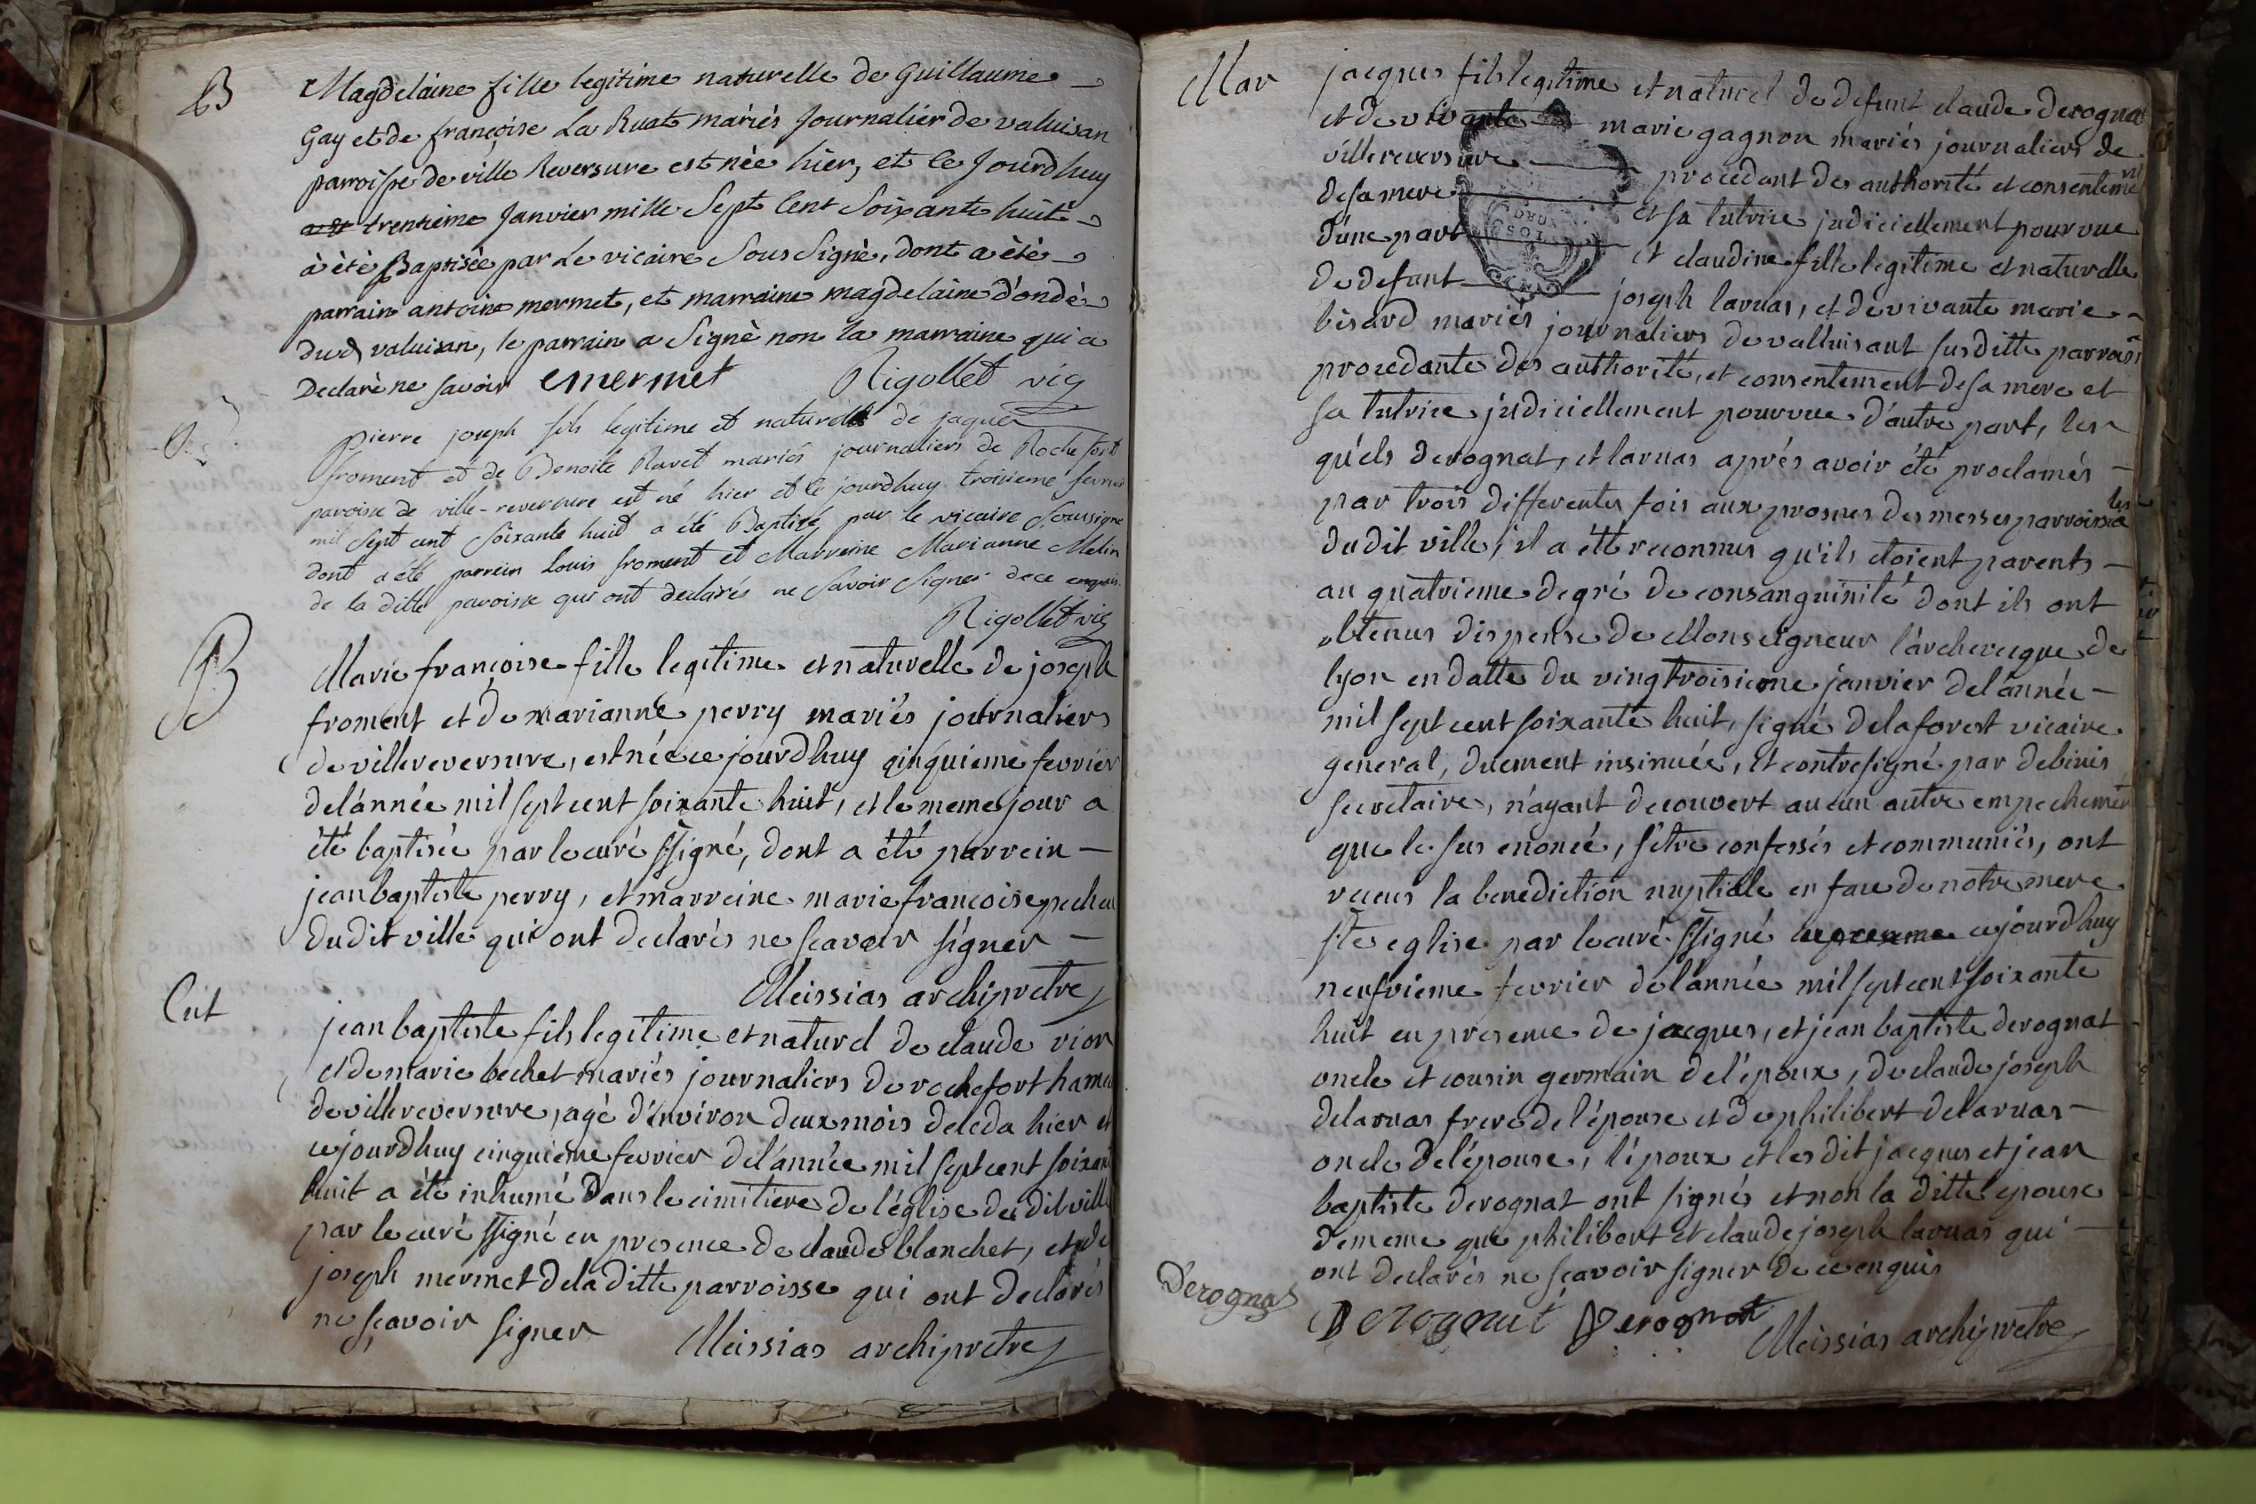 B
Magdelaine fille legitime naturelle de Guillaume
Gay et de françoise La Ruat mariés Journalier de valuisan
parroisse de ville Reversure est née hier, et ce Jourdhuy
trentieme Janvier mille Sept Cent Soixante huit
à été Baptisée par Le vicaire Sous Signé, dont a été
parrain antoine mermet, et marraine magdelaine d'ondé
dud valuisan, le parrain a Signé non la marraine qui a
Declaré ne savoir emermet Rigollet vic
B
Pierre joseph fils legitime et naturel de jaques
froment et de Benoite Ravet mariés journaliers de Rochefort
paroisse de ville-reversure est né hier et le jourdhuy troisieme fevrier
mil Sept cent Soixante huit a été Baptisé par le vicaire Soussigné
dont a été parrein Louis froment et Marreine Marianne Melin
de la ditte paroisse qui ont declarés ne Savoir Signer de ce enquis
Rigollet vic
B
Marie françoise fille legitime et naturelle de joseph
froment et de marianne perry mariés journaliers
de villereversure, est née ce jourdhuy cinquieme fevrier
de l'année mil sept cent soixante huit, et le meme jour a
été baptisée par le curé ssigné, dont a été parrein
jean baptiste perry, et marreine marie françoise pechou
dudit ville qui ont declarés ne scavoir signer
Meissias archipretre
Ent
jean baptiste fils legitime et naturel de claude vion
et de marie bechet mariés journaliers de rochefort hameau
de villereversure, agé d'environ deux mois deceda hier et
ce jourdhuy cinquieme fevrier de l'année mil sept cent soixante
huit a été inhumé dans le cimitiere de l'église dudit ville
par le curé ssigné en presence de claude blanchet, et de
joseph mermet de la ditte parroisse qui ont declarés
ne sçavoir signer Meissias archipretre
Mar
jacques fils legitime et naturel de defunt claude derognat
et de vivante marie gagnon mariés journaliers de
villereversure procedant de authorité et consentement
de sa mere et sa tutrice judiciellement pourvue
d'une part et claudine fille legitime et naturelle
de defunt joseph laruas, et de vivante marie
bisard mariés journaliers de valluisant susditte parroisse
procedante des authorité, et consentement de sa mere et
sa tutrice judiciellement pourvue d'autre part, les
quels derognat, et laruas aprés avoir été proclamés
par trois differentes fois aux prosnes des messes parroissiales
dudit ville, il a été reconnus qu'ils etoient parents
au quatrieme degré de consanguinité dont ils ont
obtenus dispense de Monseigneur l'archeveque de
lyon en datte du vingtroisieme janvier de l'année
mil sept cent soixante huit, signé delaforest vicaire
general, duement insinuée, et contresigné par debinis
secretaire, n'ayant decouvert aucun autre empechement
que le sus enoncé, s'étre confessés et communiés, ont
receus la benediction nuptiale en face de notre mere
ste eglise par le curé ssigné ce jourdhuy
neufvieme fevrier de l'année mil sept cent soixante
huit en presence de jacques, et jean baptiste derognat
oncle et cousin germain de l'époux, de claude joseph
delaruas frere de l'épouse et de philibert delaruas
oncle de l'épouse, l'époux et les dit jacques et jean
baptiste derognat ont signés et non la ditte epouse
de meme que philibert et claude joseph laruas qui
ont declarés ne scavoir signer de ce enquis
Derognat Derognat Derognat Meissias archipretre